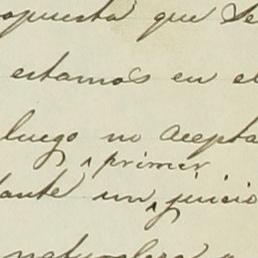 opuesta que se
estamos en el
luego no acepta
primer
tante un juicio
naturaleza